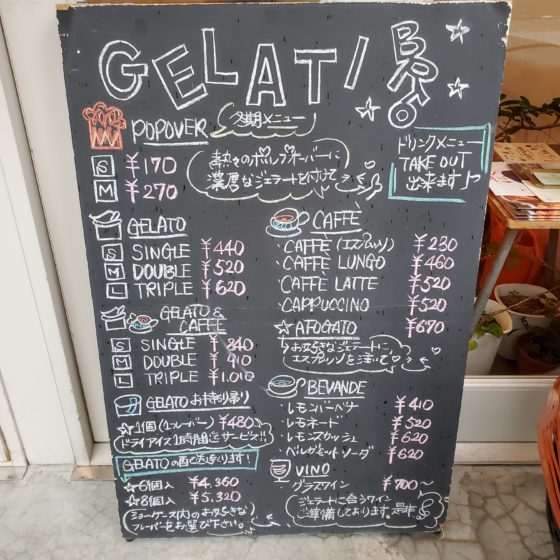 GELATI BRIO
POPOVER
冬期メニュー
S ¥170
M ¥270
熱々のポップオーバーに
濃厚なジェラートを付けて
ドリンクメニュー
TAKE OUT
出来ます♪
GELATO
S SINGLE ¥440
M DOUBLE ¥520
L TRIPLE ¥620
GELATO &
CAFFÈ
S SINGLE ¥840
M DOUBLE ¥910
L TRIPLE ¥1,010
GELATO お持ち帰り
☆1個(1フレーバー) ¥480
ドライアイス1時間迄サービス!!
GELATOの配送承ります!
☆6個入 ¥4,360
☆8個入 ¥5,320
ショーケース内のお好きな
フレーバーをお選び下さい。
CAFFÈ
CAFFÈ (エスプレッソ) ¥230
CAFFÈ LUNGO ¥460
CAFFÈ LATTE ¥520
CAPPUCCINO ¥520
☆AFOGATO ¥670
お好きなジェラートに
エスプレッソを注いで♡
BEVANDE
レモンバーベナ ¥410
レモネード ¥520
レモンスカッシュ ¥620
ベルガモットソーダ ¥620
VINO
グラスワイン ¥700〜
ジェラートに合うワイン
ご準備しております。是非!